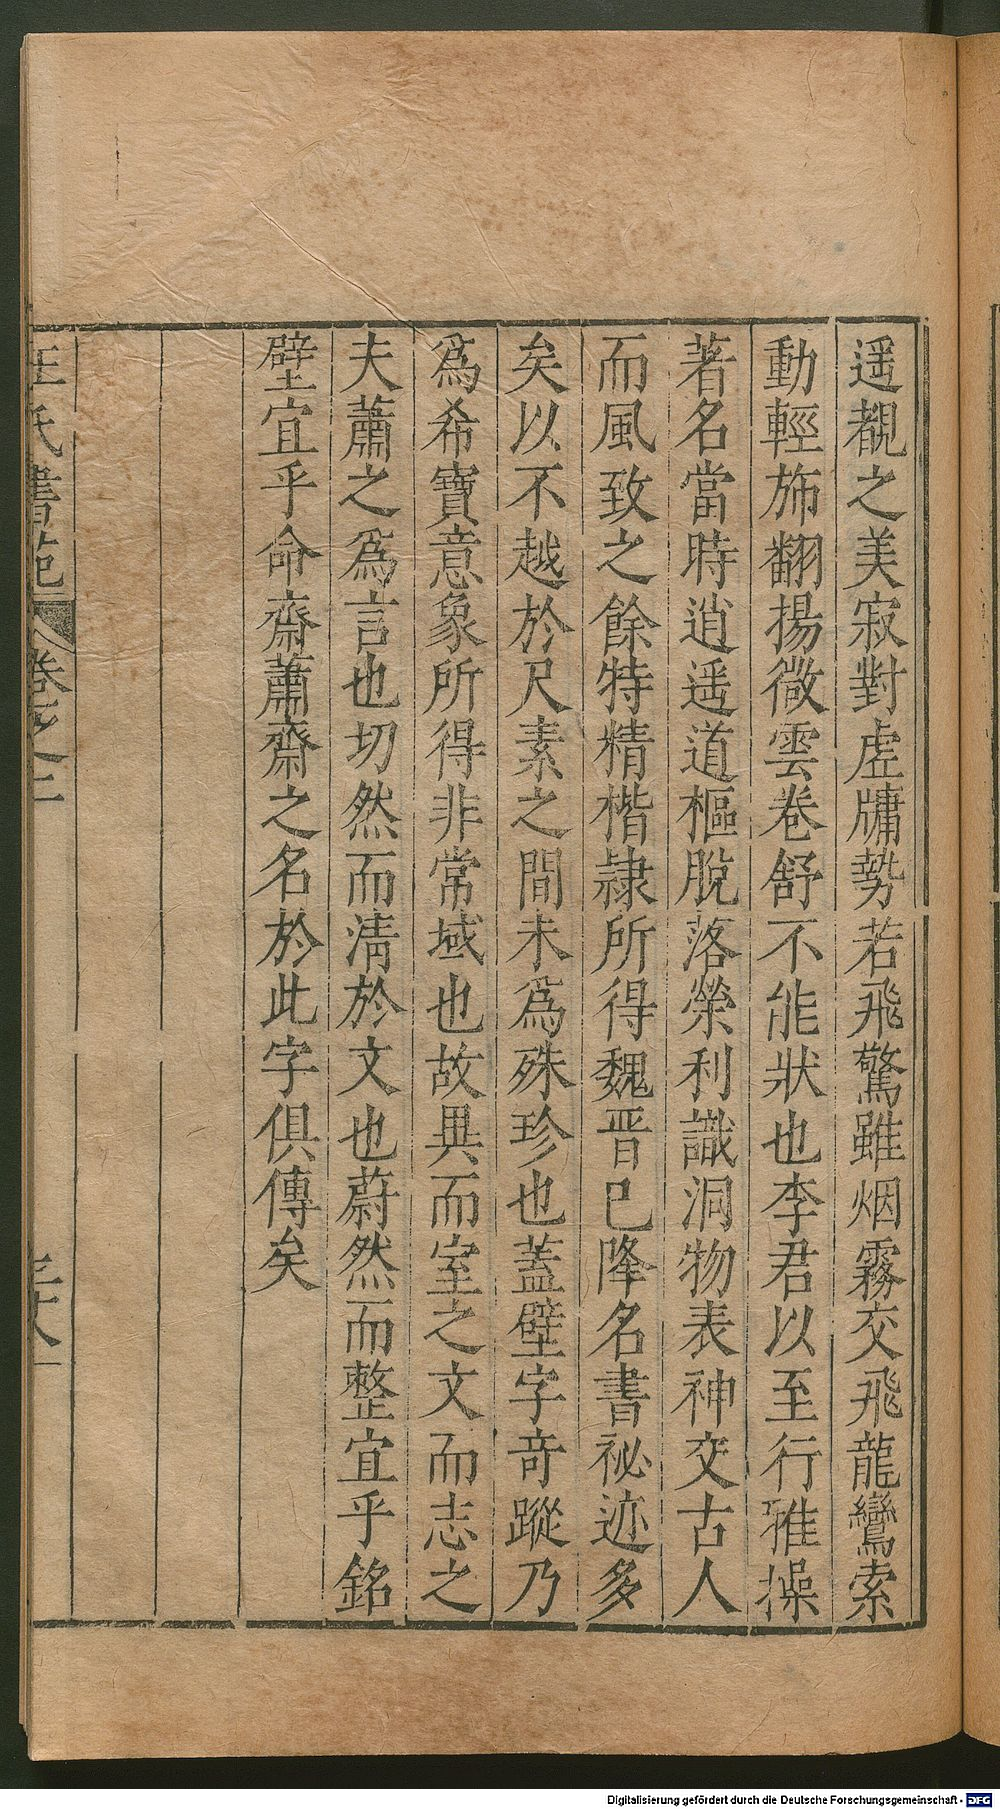 遥覩之美寂對虛牗勢若飛驚雖烟霧交飛龍鸞索
動輕斾翻揚微雲卷舒不能狀也李君以至行雅操
著名當時逍遥道樞脫落榮利識洞物表神交古人
而風致之餘特精楷隷所得魏晋已降名書祕迹多
矣以不越於尺素之間未爲殊珍也蓋壁字奇蹤乃
爲希寶意象所得非常域也故異而室之文而志之
夫蕭之爲言也切然而清於文也蔚然而整宜乎銘
壁宜乎命齋蕭齋之名於此字俱傳矣
王氏書苑 卷之二 三十八
Digitalisierung gefördert durch die Deutsche Forschungsgemeinschaft - DFG